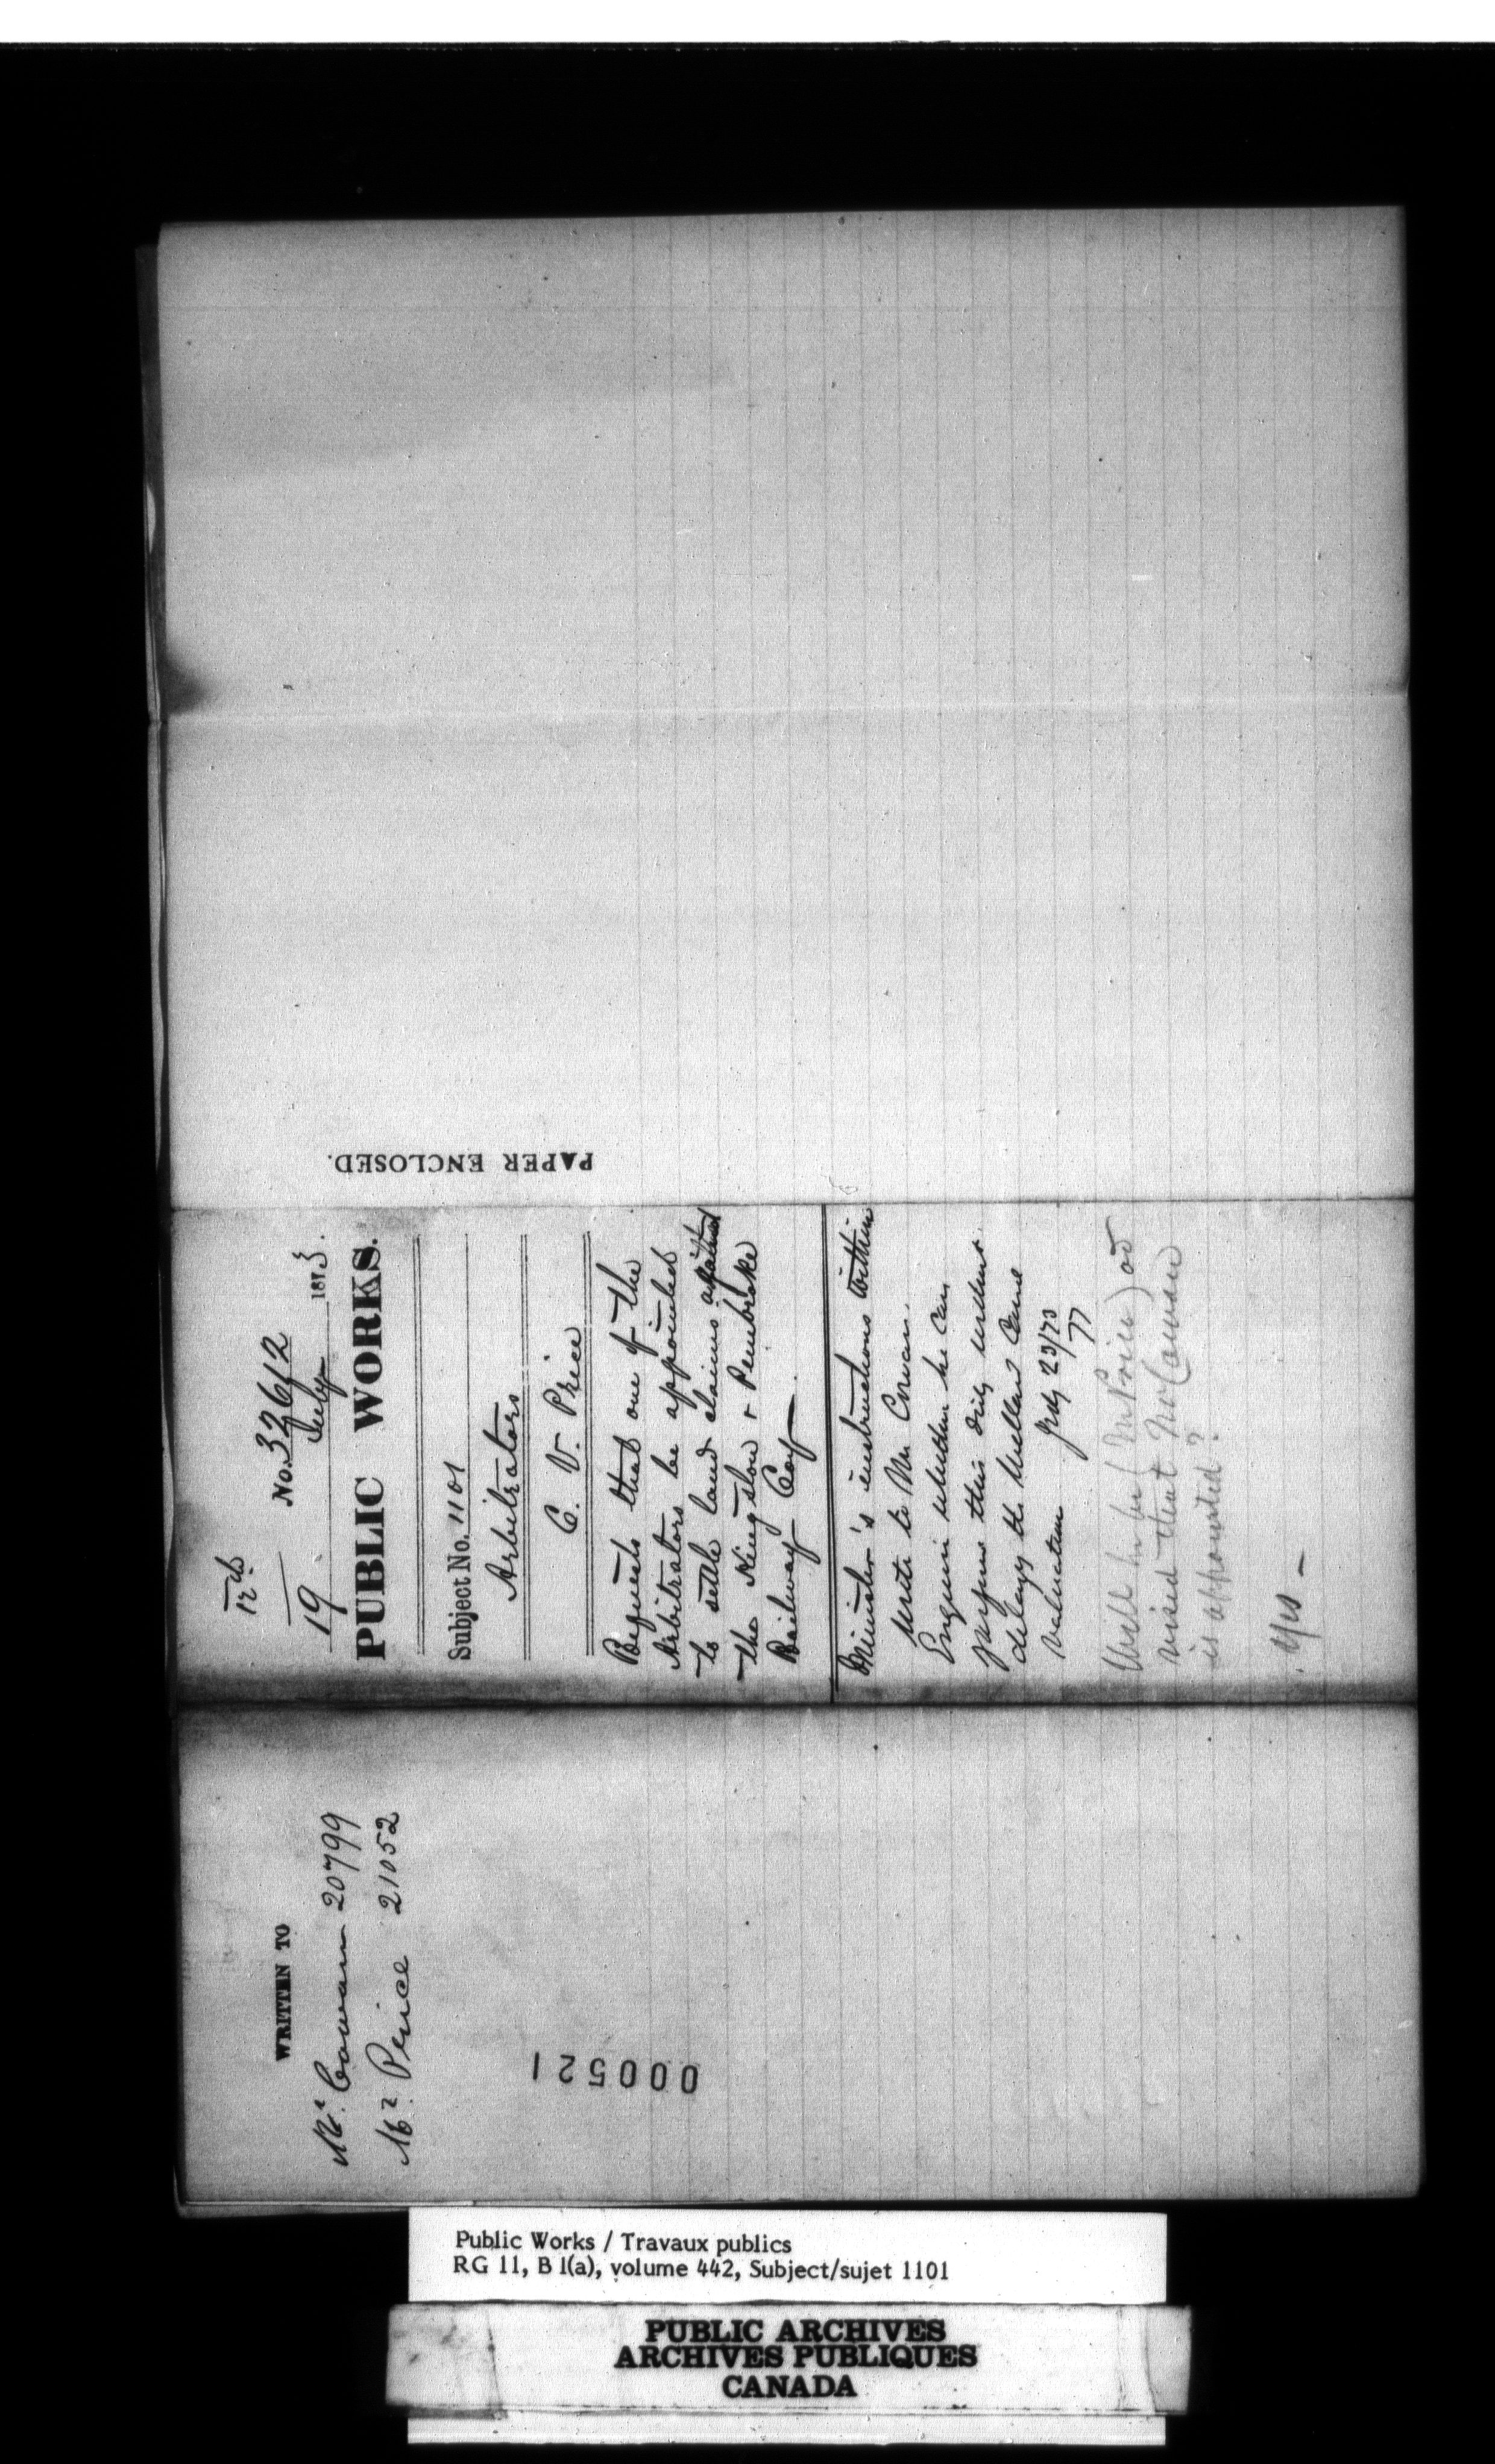 12th
No. 32612
19 July 1873.
PUBLIC WORKS.
Subject No. 1101
Arbitrators
C. V. Price
Requests that one of the
Arbitrators be appointed
to settle land claims against
the Kingston & Pembroke
Railway Coy.
Minister's instructions within
Write to Mr Cowan.
Enquire whether he can
perform this duty without
delays the Welland Canal
valuation July 23/73
77
Will he be (Mr Price) ad
vised that Mr Cowan
is appointed?
Yes -
PAPER ENCLOSED.
WRITTEN TO
Mr. Cowan 20799
Mr. Price 21052
000521
Public Works / Travaux publics
RG 11, B 1(a), volume 442, Subject/sujet 1101
PUBLIC ARCHIVES
ARCHIVES PUBLIQUES
CANADA